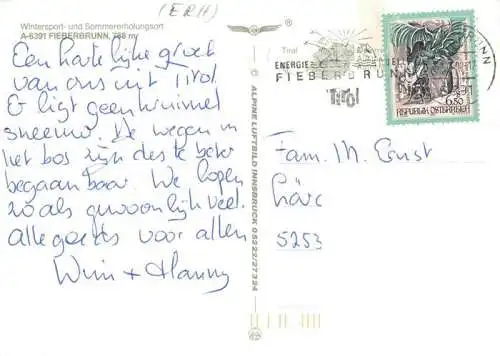 (ERH)
Wintersport- und Sommererholungsort
A-6391 FIEBERBRUNN, 788 m
Een hartelijke groet
van ons uit Tirol
Er ligt geen kruimel
sneeuw. De wegen in
het bos zijn des te beter
begaanbaar. We hopen
zo als gewoonlijk veel.
alle goeds voor allen
Wim + Hanny
ALPINE LUFTBILD INNSBRUCK 05222/27324
Tirol
ENERGIE
FIEBERBRUNN
Tirol
6.50
REPUBLIK ÖSTERREICH
Fam. M. Ernst
Lärc
5253